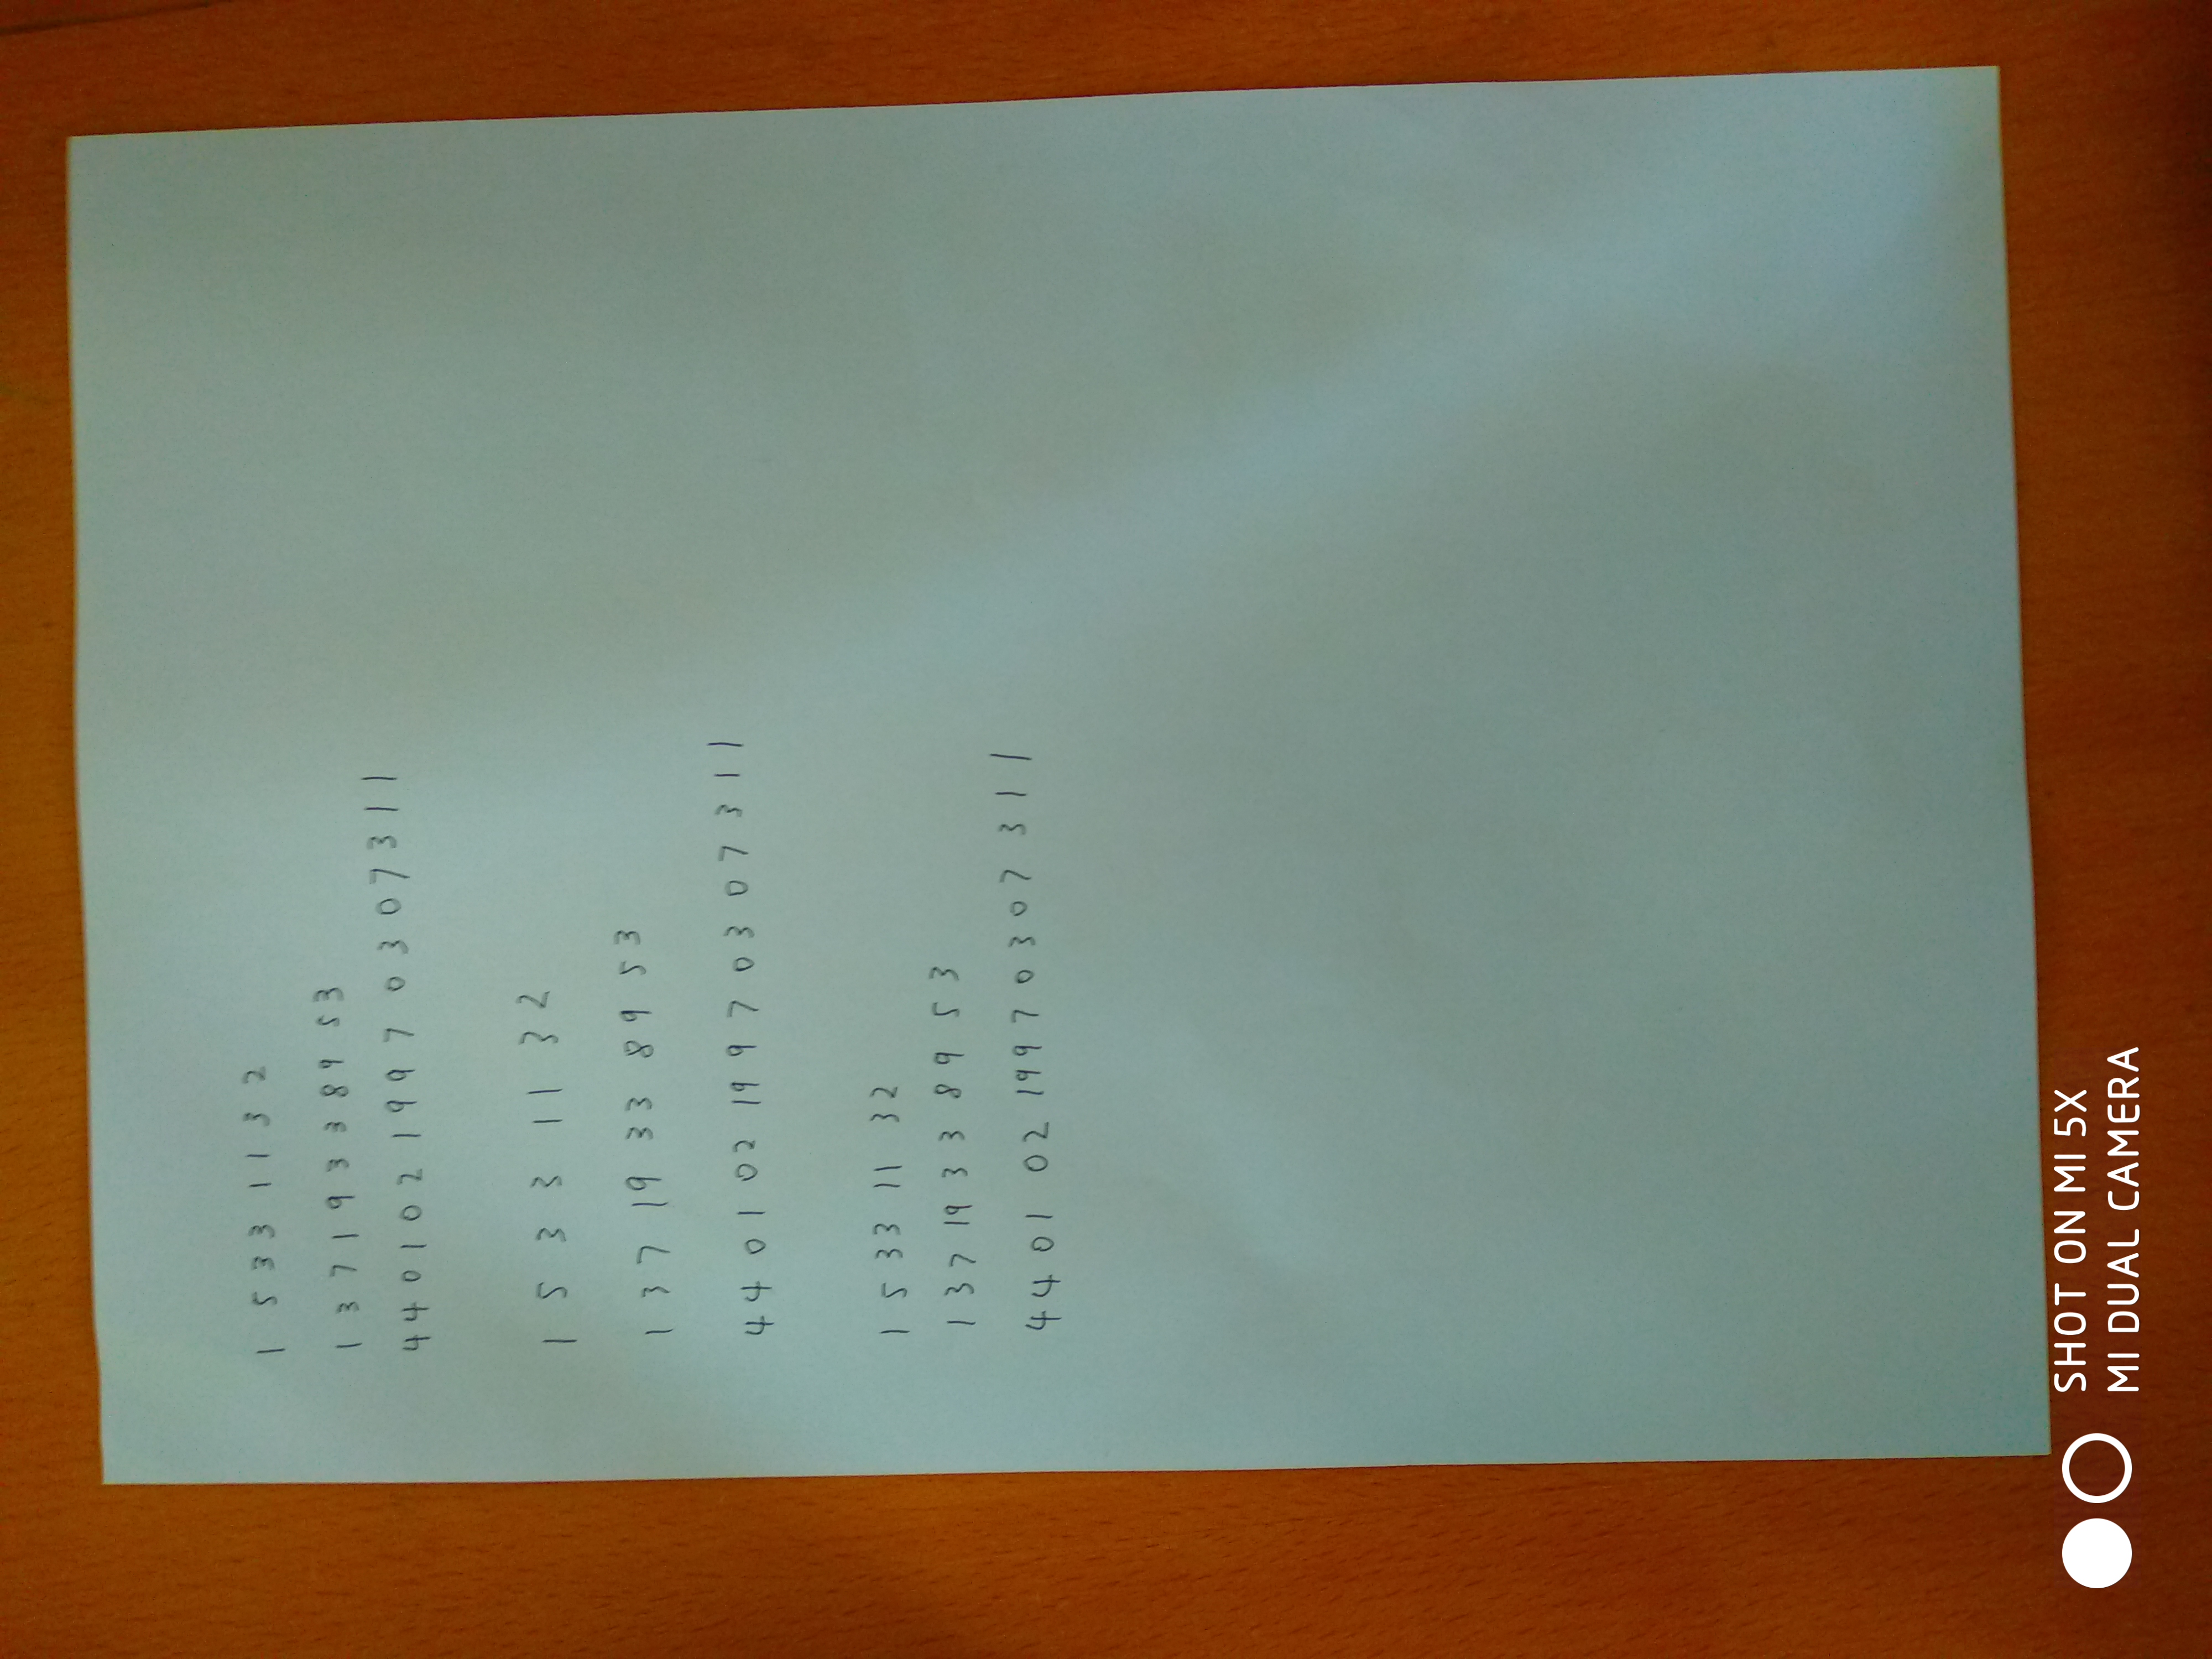 1 5 3 3 1 1 3 2
1 3 7 1 9 3 3 8 9 5 3
4 4 0 1 0 2 1 9 9 7 0 3 0 7 3 1 1
1 5 3 3 1 1 3 2
1 3 7 19 3 3 8 9 5 3
4 4 0 1 0 2 19 9 7 0 3 0 7 3 1 1
1 5 33 11 32
1 3 7 19 3 3 8 9 5 3
4 4 0 1 0 2 199 7 0 3 0 7 3 1 1
SHOT ON MI 5X
MI DUAL CAMERA